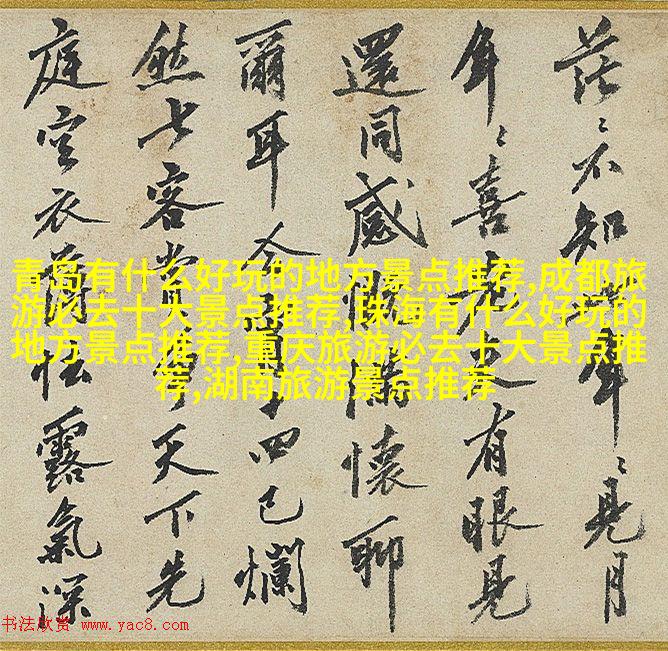 茫〻不知年〻見月
年〻喜有眼見
還同感懷聊
爾耳今四已爛
然七客賞天下先
庭空衣松露氣深
青岛有什么好玩的地方景点推荐,成都旅
游必去十大景点推荐,珠海有什么好玩的
地方景点推荐,重庆旅游必去十大景点推
荐,湖南旅游景点推荐
书法欣赏 www.yac8.com